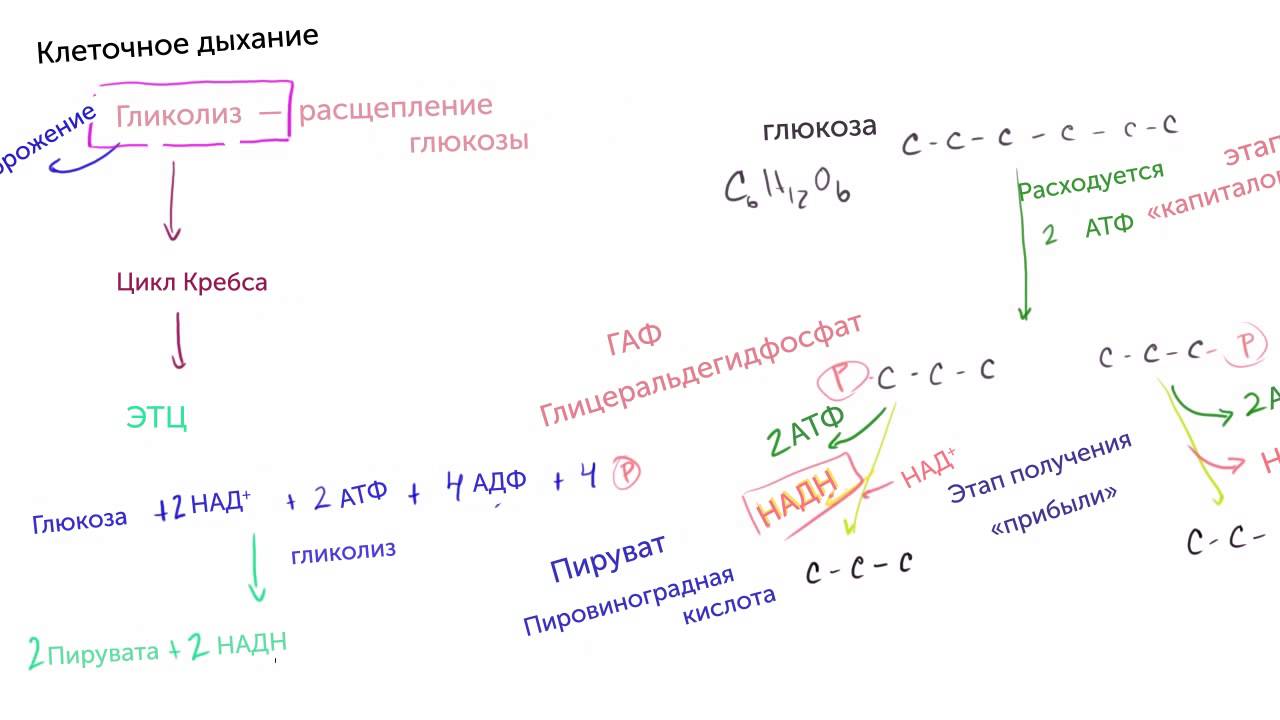 Клеточное дыхание
Гликолиз — расщепление
глюкозы
Цикл Кребса
ЭТЦ
Глюкоза +2 НАД⁺ + 2 АТФ + 4 АДФ + 4 P
гликолиз
2 Пирувата + 2 НАДН
глюкоза C - C - C - C - C - C
C₆H₁₂O₆
Расходуется
2 АТФ
этап
ГАФ
Глицеральдегидфосфат
P - C - C - C
C - C - C - P
2 АТФ
НАДН
НАД⁺
Этап получения
«прибыли»
Пируват
Пировиноградная
кислота
C - C - C
C - C -